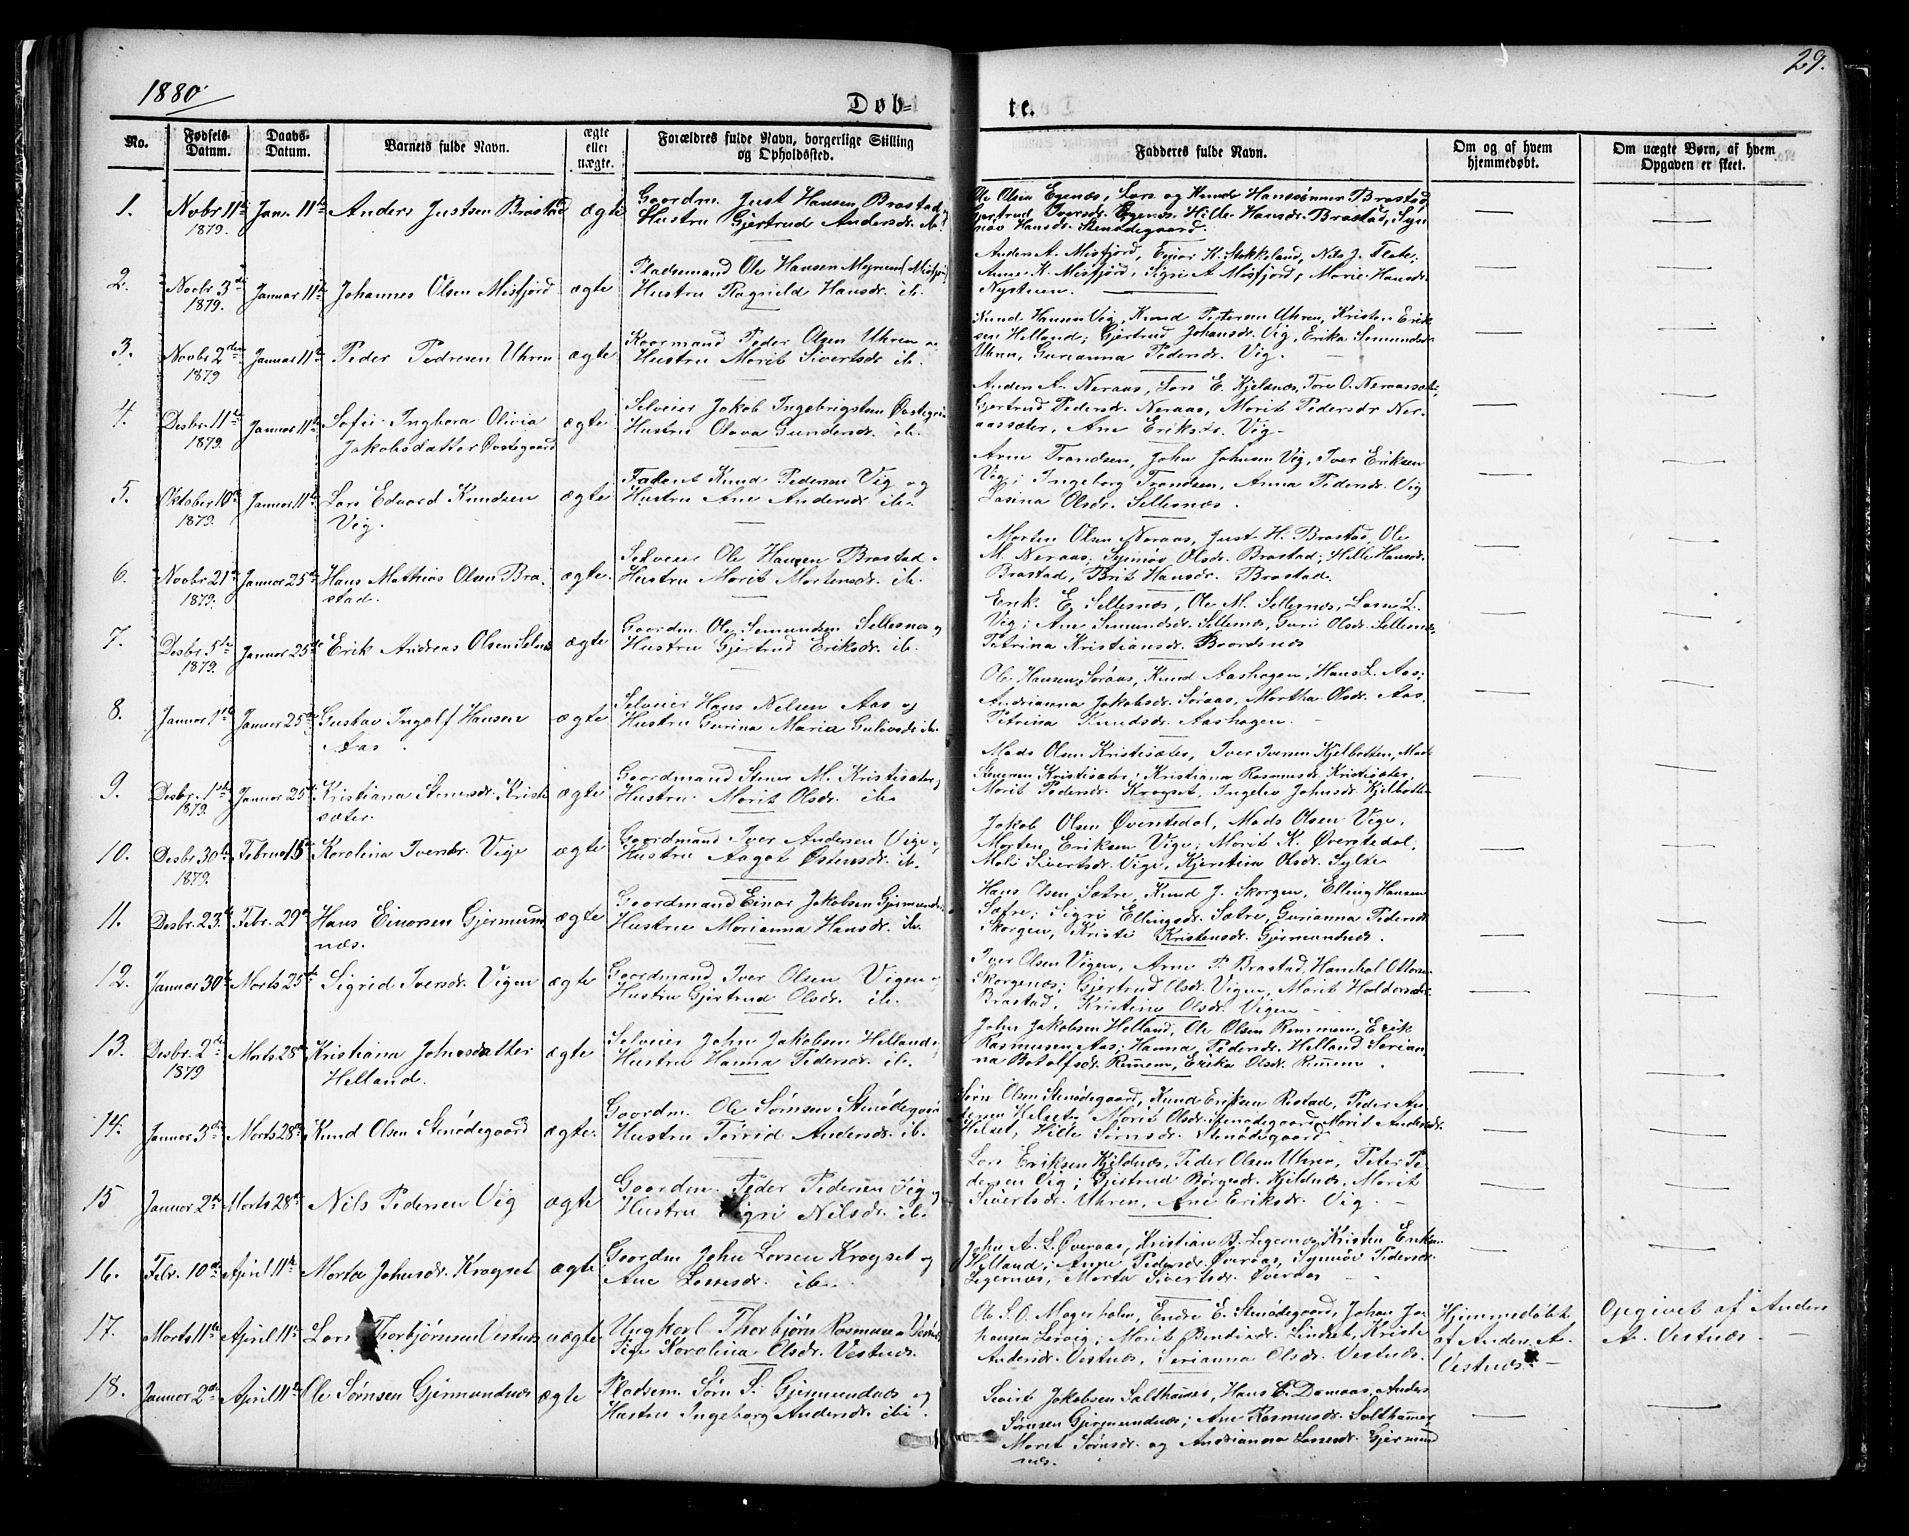 1880.
29.
Døb-
te.
No.
Fødsels-
Datum.
Daabs-
Datum.
Barnets fulde Navn.
ægte
eller
uægte.
Forældres fulde Navn, borgerlige Stilling
og Opholdssted.
Fadderes fulde Navn.
Om og af hvem
hjemmedøbt.
Om uægte Børn, af hvem
Opgaven er skeet.
1. Novbr 11te
1879.
Janr. 11te
Anders Justsen Brastad
ægte
Gaardm. Just Hansen Brastad og
Hustru Gjertrud Andersdr. ib.
Ole Olsen Egenæs, Lars og Knud Hanssønner Brastad,
Gjertrud Iversdr. Egenæs, Hille Hansdr. Brastad, Syn-
nøv Hansdr. Stenødegaard.
2. Novbr. 3die
1879.
Januar 11te
Johannes Olsen Misfjord
ægte
Pladsemand Ole Hansen Myren (Misfjord)
Hustru Ragnild Hansdr. ib.
Anders A. Misfjord, Einar K. Stokkeland, Nils J. Flate;
Anne K. Misfjord, Sigri A. Misfjord, Marie Hansdr.
Nystuen.
3. Novbr. 2den
1879
Januar 11te
Peder Pedersen Uhren
ægte
Kaarmand Peder Olsen Uhren
Hustru Marit Sivertsdr. ib.
Knud Hansen Vig, Knud Petersen Uhren, Kristen Erik-
sen Helland; Gjertrud Johansdr. Vig, Erika Semundsdr.
Uhren, Gurianna Pedersdr. Vig.
4. Desbr. 11te
1879.
Januar 11te
Sofie Ingbora Olivia
Jakobsdatter Øvstegaard
ægte
Selveier Jakob Ingebrigtsen
Hustru Olava Gundersdr. ib.
Anders A. Neraas, Lars E. Kjelnæs, Tore O. Neraassæt;
Gjertrud Pedersdr. Neraas, Marit Pedersdr Ner-
aassæter, Ane Eriksdr. Vig
5. Oktober 10de
1879.
Januar 11te
Lars Edvard Knudsen
Vig.
ægte
Knud Pedersen Vig og
Hustru Ane Andersdr. ib.
Arne Trondsen, John Johnsen Vig, Iver Eriksen
Vig; Ingeborg Trondsen, Anna Pedersdr. Vig
Lasina Olsdr. Sellesnæs.
6. Novbr. 21de
1879.
Januar 25de
Hans Mathias Olsen Bra-
stad.
ægte.
Selveier Ole Hansen Brastad
Hustru Marit Mortensdr. ib.
Morten Olsen Neraas, Just H. Brastad, Ole
M. Neraas; Synnøv Olsdr. Brastad; Hille Hansdr.
Brastad, Brit Hansdr. Brastad.
7. Desbr. 5te
1879.
Januar 25de
Erik Andreas Olsen Selnæs
ægte
Gaardm. Ole Semundsen Sellesnæs og
Hustru Gjertrud Eriksdr. ib.
Erik E. Sellesnæs, Ole M. Sellesnæs, Lasse L.
Vig; Ane Semundsdr. Sellesnæs, Guri Olsdr. Sellesnæs,
Petrina Kristiansdr. Baardsnæs
8. Januar 1ste
Januar 25de
Gustav Ingolf Hansen
Aas
ægte
Selveier Hans Nelsen Aas og
Hustru Gurina Maria ib.
Ole Hansen Søraas, Knud Aashagen, Hans L. Aas;
Andrianna Jakobsdr. Søraas, Martha Olsdr. Aas,
Petrina Knudsdr. Aashagen.
9. Desbr. 1ste
1879.
Januar 25de
Kristiana Stenersdr. Kristi-
sæter.
ægte
Gaardmand Stener M. Kristisæter og
Hustru Marit Olsdr. ib.
Mads Olsen Kristisæter, Iver Iversen Kjelbotten, Mads
Stenersen Kristisæter; Kristiana Rasmusdr. Kristisæter,
Marit Pedersdr. Kragset, Ingelev Johnsdr. Kjelbotten
10. Desbr. 30te
1879.
Februar 15de
Karolina Iversdr. Vige
ægte
Gaardmand Iver Andersen Vige
Hustru Aagot Østensdr. ib.
Jakob Olsen Øverstedal, Mads Olsen Vige,
Morten Eriksen Vige; Marit K. Øverstedal,
Mali Sivertsdr. Vige, Kjerstina Olsdr. Sylte
11. Desbr. 23de
Febr. 29de
Hans Einarsen Gjermund-
næs.
ægte
Gaardmand Einar Jakobsen Gjermundnæs
Hustru Marianna Hansdr. ib.
Hans Olsen Sætre, Knud J. Skorgen, Elling Hansen
Sætre; Sigri Ellingsdr. Sætre, Gurianna Pedersdr.
Skorgen, Kristi Kristensdr. Gjermundnæs.
12. Januar 30te
Marts 25de
Sigrid Iversdr. Vigen
ægte
Gaardmand Iver Olsen Vigen
Hustru Gjertrud Olsdr. ib.
Iver Olsen Vigen, Arne P. Brastad,
Skorgenæs; Gjertrud Olsdr. Vigen, Marit
Brastad, Kristine Olsdr. Vigen
13. Desbr. 2den
1879
Marts 28de
Kristiana Johnsdatter
Helland.
ægte
Selveier John Jakobsen Helland
Hustru Hanna Pedersdr. ib.
John Jakobsen Helland, Ole Olsen Remmem, Erik
Rasmusen Aas; Hanna Pedersdr. Helland Serian-
na Botolfsdr. Remem, Erika Olsdr. Remem.
14. Januar 3die
Marts 28de
Knud Olsen Stenødegaard
ægte.
Gaardm. Ole Sørnsen Stenødegaard
Hustru Torrid Andersdr. ib.
Sørn Olsen Stenødegaard, Knud Eriksen Ristad, Peder An-
dersen Helset; Marit Olsdr. Stenødegaard, Marit Andersdr.
Helset, Hille Sørnsdr. Stenødegaard
15 Januar 2den
Marts 28de
Nils Pedersen Vig
ægte
Gaardm. Peder Pedersen Vig
Hustru Sigri Nilsdr. ib.
Lars Eriksen Kjeldnæs, Peder Olsen Uhren, Peter Pe-
dersen Vig; Gjertrud Børgesdr. Kjeldnæs, Marit
Sivertsdr. Uhren, Ane Eriksdr. Vig.
16. Febr. 10de
April 11te
Marta Johnsdr. Kragset
ægte
Gaardm John Larsen Kragset og
Ane Lassesdr. ib.
John A. L. Øveraas, Kristian B. Legernæs, Kristen Eriks.
Helland; Anne Pedersdr. Øveraas, Synnøv Pedersdr.
Legernæs, Marta Sivertsdr. Øveraas
17. Marts 11te
April 11te
Lars Thorbjørnsen Vestnæs
uægte
Ungkarl Thorbjørn Rasmusen
Pige Karolina Olsdr. Vestnæs.
Ole S. O. Magerholm, Endre E. Stenødegaard, Johan Jo-
hansen Lervig; Marit Bendixdr. Lindset, Kristi
Andersdr. Vestnæs, Serianna Olsdr. Vestnæs.
Hjemmedøbt
af Anders A.
Vestnæs.
Opgivet af Anders
A. Vestnæs.
18. Januar 2den
April 11te
Ole Sørnsen Gjermundnæs
ægte
Pladsem. Sørn S. Gjermundnæs og
Hustru Ingeborg Andersdr. ibi.
Sivert Jakobsen Salthamer, Hans E. Damaas, Anders
Sørnsen Gjermundnæs; Ane Rasmusdr. Salthamer,
Marit Sørnsdr. og Andrianna Lassesdr. Gjermund-
næs.